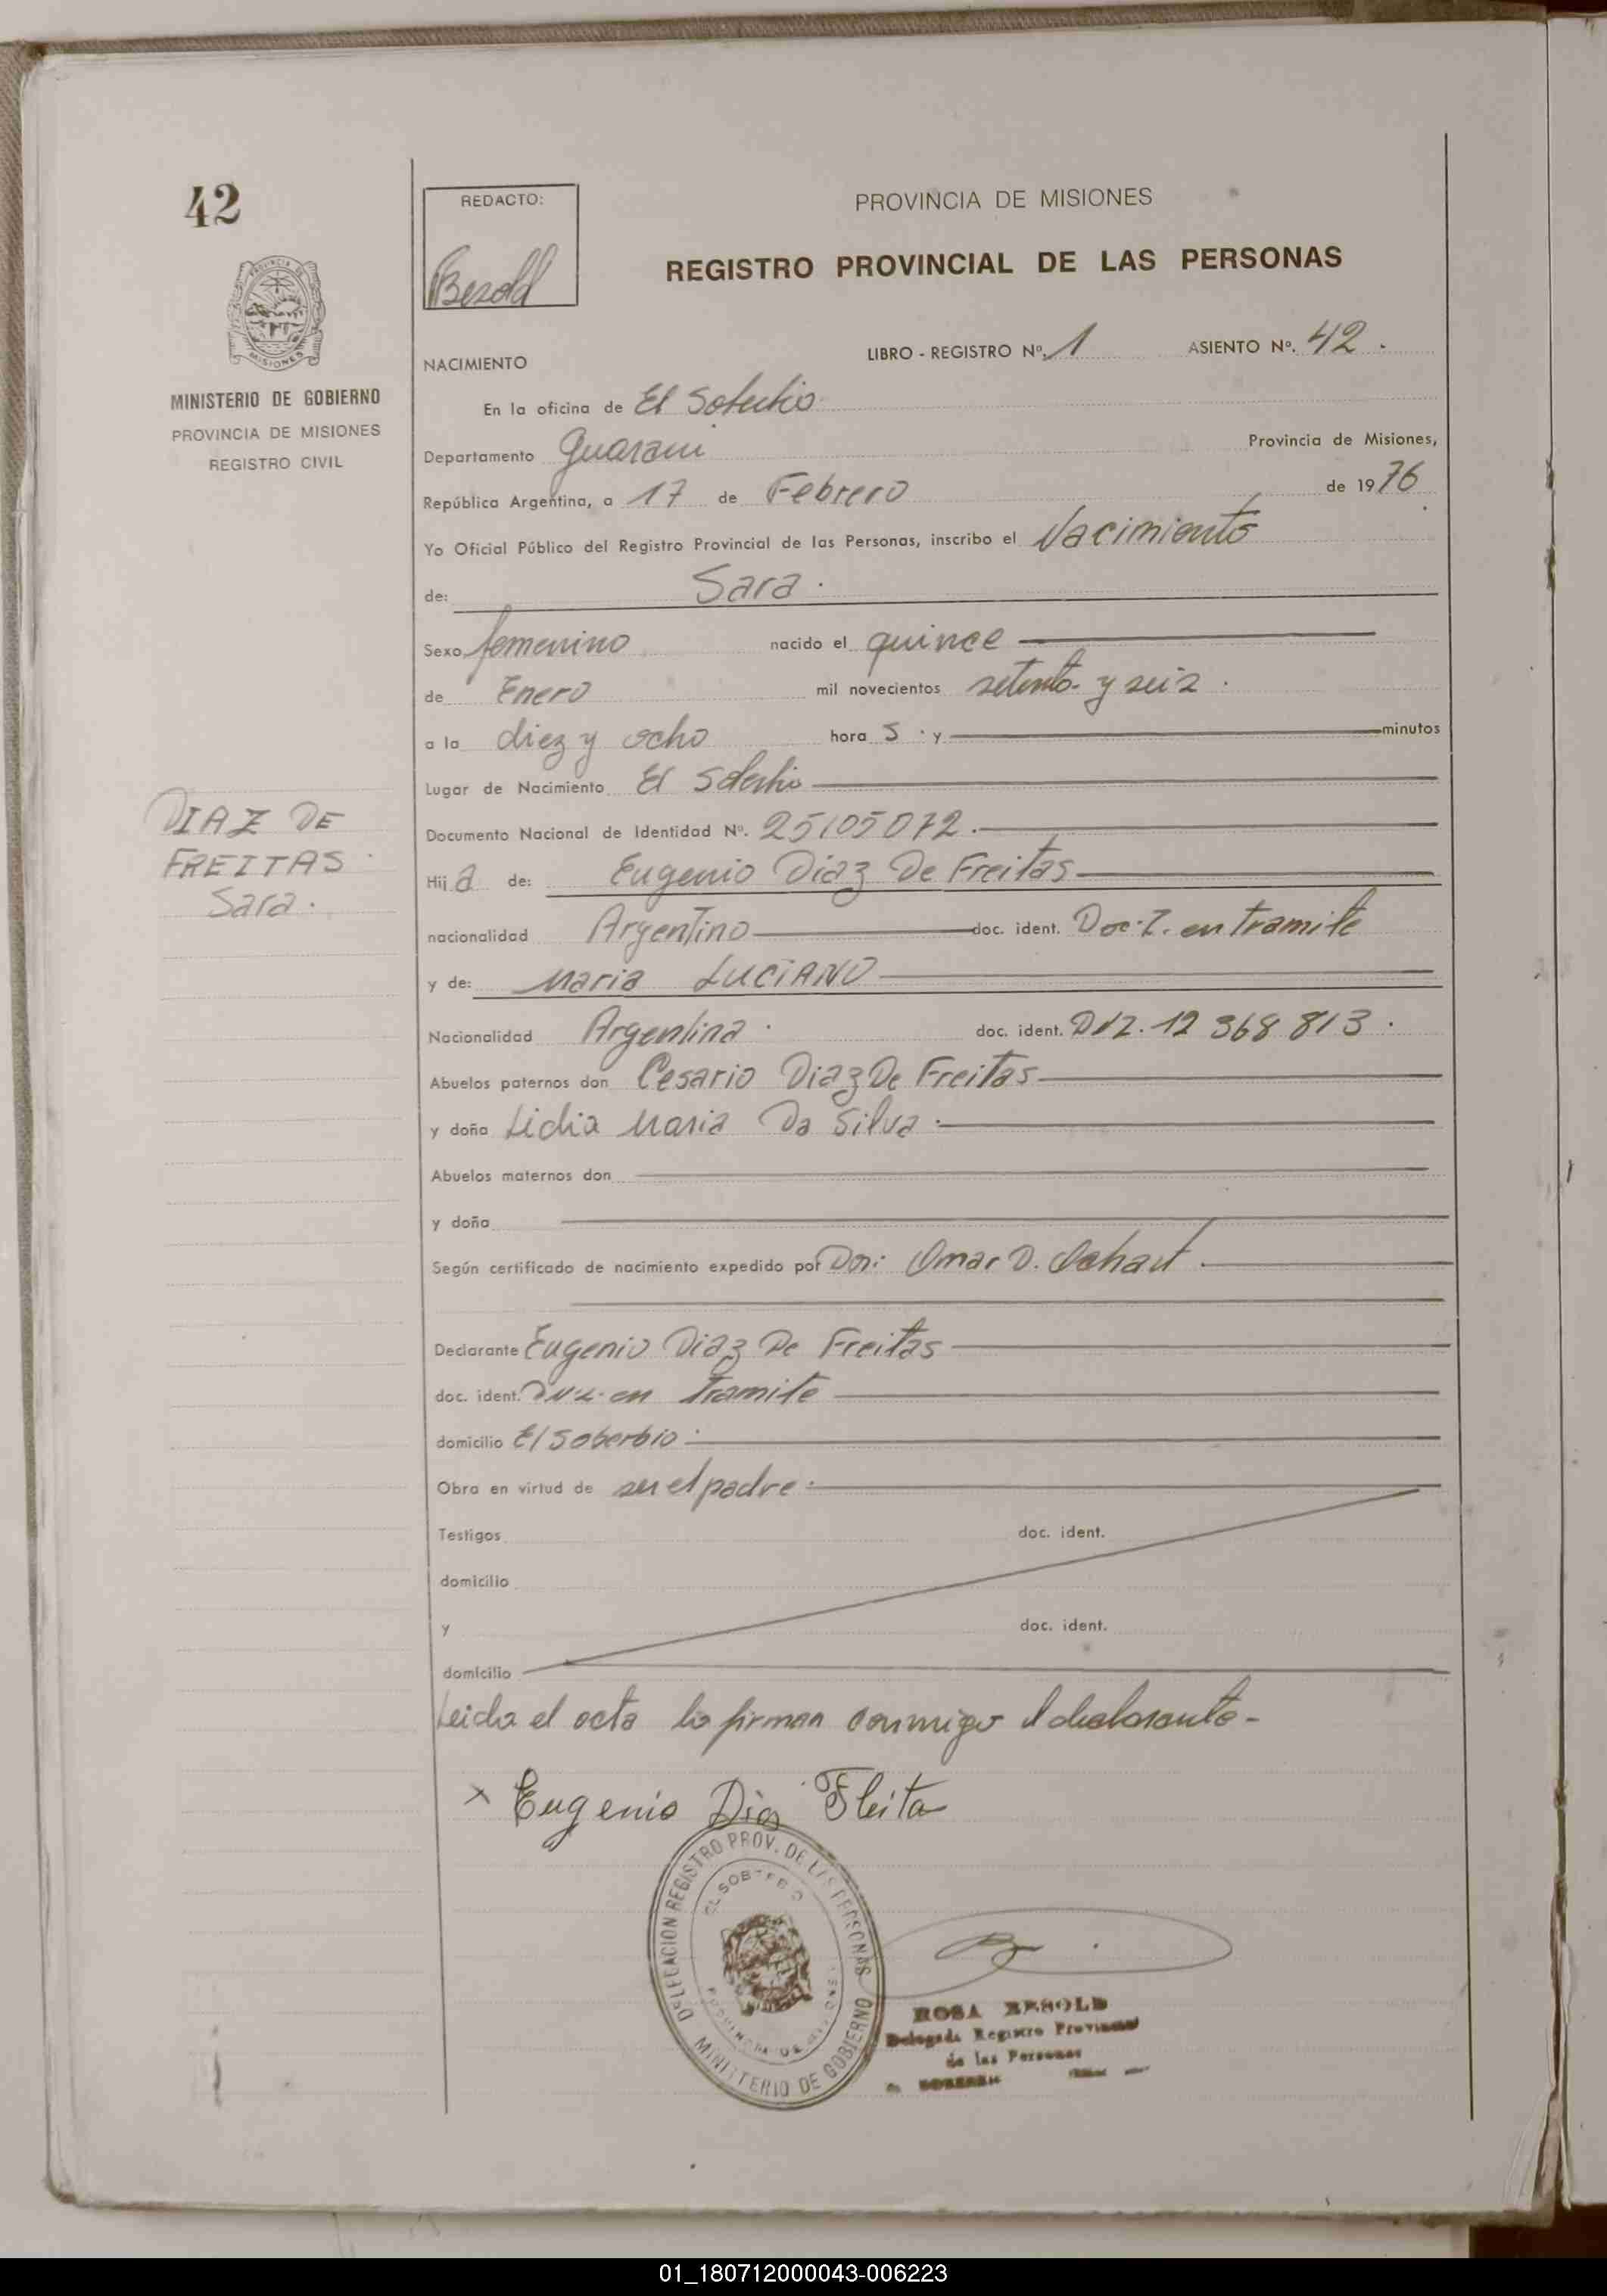 42
MINISTERIO DE GOBIERNO
PROVINCIA DE MISIONES
REGISTRO CIVIL
DIAZ DE
FREITAS.
Sara.
REDACTO:
Besold
PROVINCIA DE MISIONES
REGISTRO PROVINCIAL DE LAS PERSONAS
NACIMIENTO LIBRO - REGISTRO Nº. 1 ASIENTO Nº. 42.
En la oficina de El Soberbio
Departamento Guarani Provincia de Misiones,
República Argentina, a 17 de Febrero de 1976
Yo Oficial Público del Registro Provincial de las Personas, inscribo el Nacimiento
de: Sara.
Sexo femenino nacido el quince
de Enero mil novecientos setenta y seis.
a la diez y ocho hora s. y minutos
Lugar de Nacimiento El Soberbio
Documento Nacional de Identidad Nº. 25105072.
Hija de: Eugenio Diaz De Freitas
nacionalidad Argentino doc. ident. en tramite
y de: Maria LUCIANO
Nacionalidad Argentina. doc. ident. 12 368 813.
Abuelos paternos don Cesario Diaz De Freitas
y doña Lidia Maria Da Silva.
Abuelos maternos don
y doña
Según certificado de nacimiento expedido por Omar D.
Declarante Eugenio Diaz De Freitas
doc. ident. en tramite
domicilio El Soberbio.
Obra en virtud de ser el padre.
Testigos doc. ident.
domicilio
y doc. ident.
domicilio
Leida el acta la firman conmigo el declarante-
x Eugenio Dias Fleita
DELEGACION REGISTRO PROV. DE LAS PERSONAS
EL SOBERBIO
PROVINCIA DE MISIONES
MINISTERIO DE GOBIERNO
ROSA BESOLD
Delegada Registro Provincial
de las Personas
01_180712000043-006223